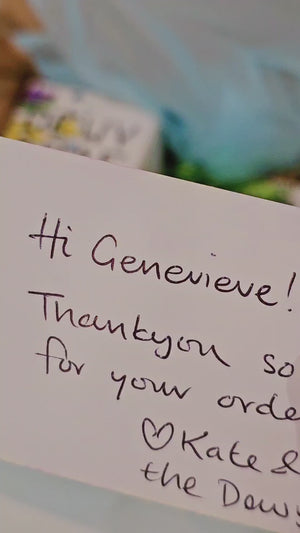 Hi Genevieve!
Thankyou so
for your orde
♡Kate &
the Daws